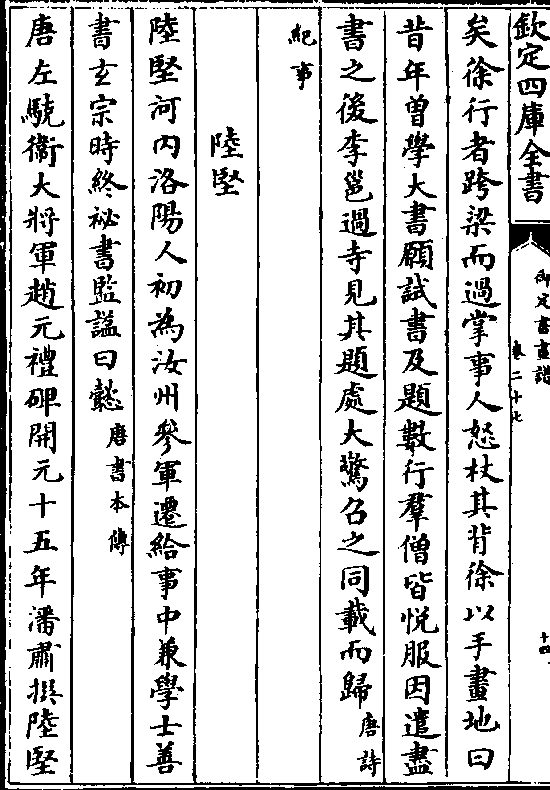 欽定四庫全書
御定書畫譜
卷二十七
十四
矣徐行者跨梁而過掌事人怒杖其背徐以手畫地曰
昔年曽學大書願試書及題數行羣僧皆悦服因遣盡
書之後李邕過寺見其題處大驚召之同載而歸唐詩
紀事
陸堅
陸堅河内洛陽人初為汝州參軍遷給事中兼學士善
書玄宗時終祕書監諡曰懿唐書本傳
唐左驍衛大將軍趙元禮碑開元十五年潘肅撰陸堅